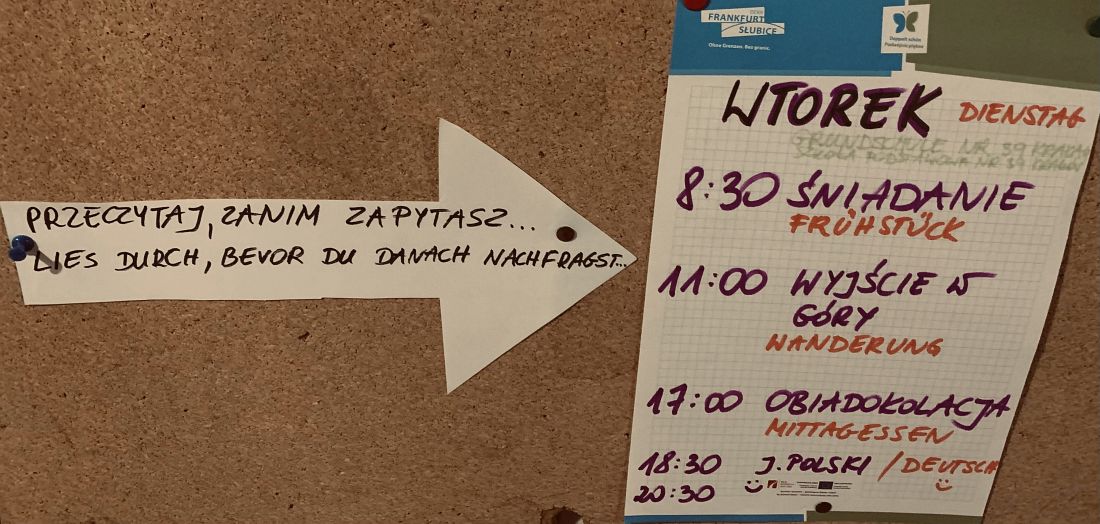 PRZECZYTAJ, ZANIM ZAPYTASZ...
LIES DURCH, BEVOR DU DANACH NACHFRAGST...
FRANKFURT
SŁUBICE
Ohne Grenzen. Bez granic.
Doppelt schön
Podwójnie pięknie
WTOREK DIENSTAG
GRUNDSCHULE NR 39
SZKOŁA PODSTAWOWA NR 39
8:30 ŚNIADANIE
FRÜHSTÜCK
11:00 WYJŚCIE W
GÓRY
WANDERUNG
17:00 OBIADOKOLACJA
MITTAGESSEN
18:30 J. POLSKI / DEUTSCH
20:30